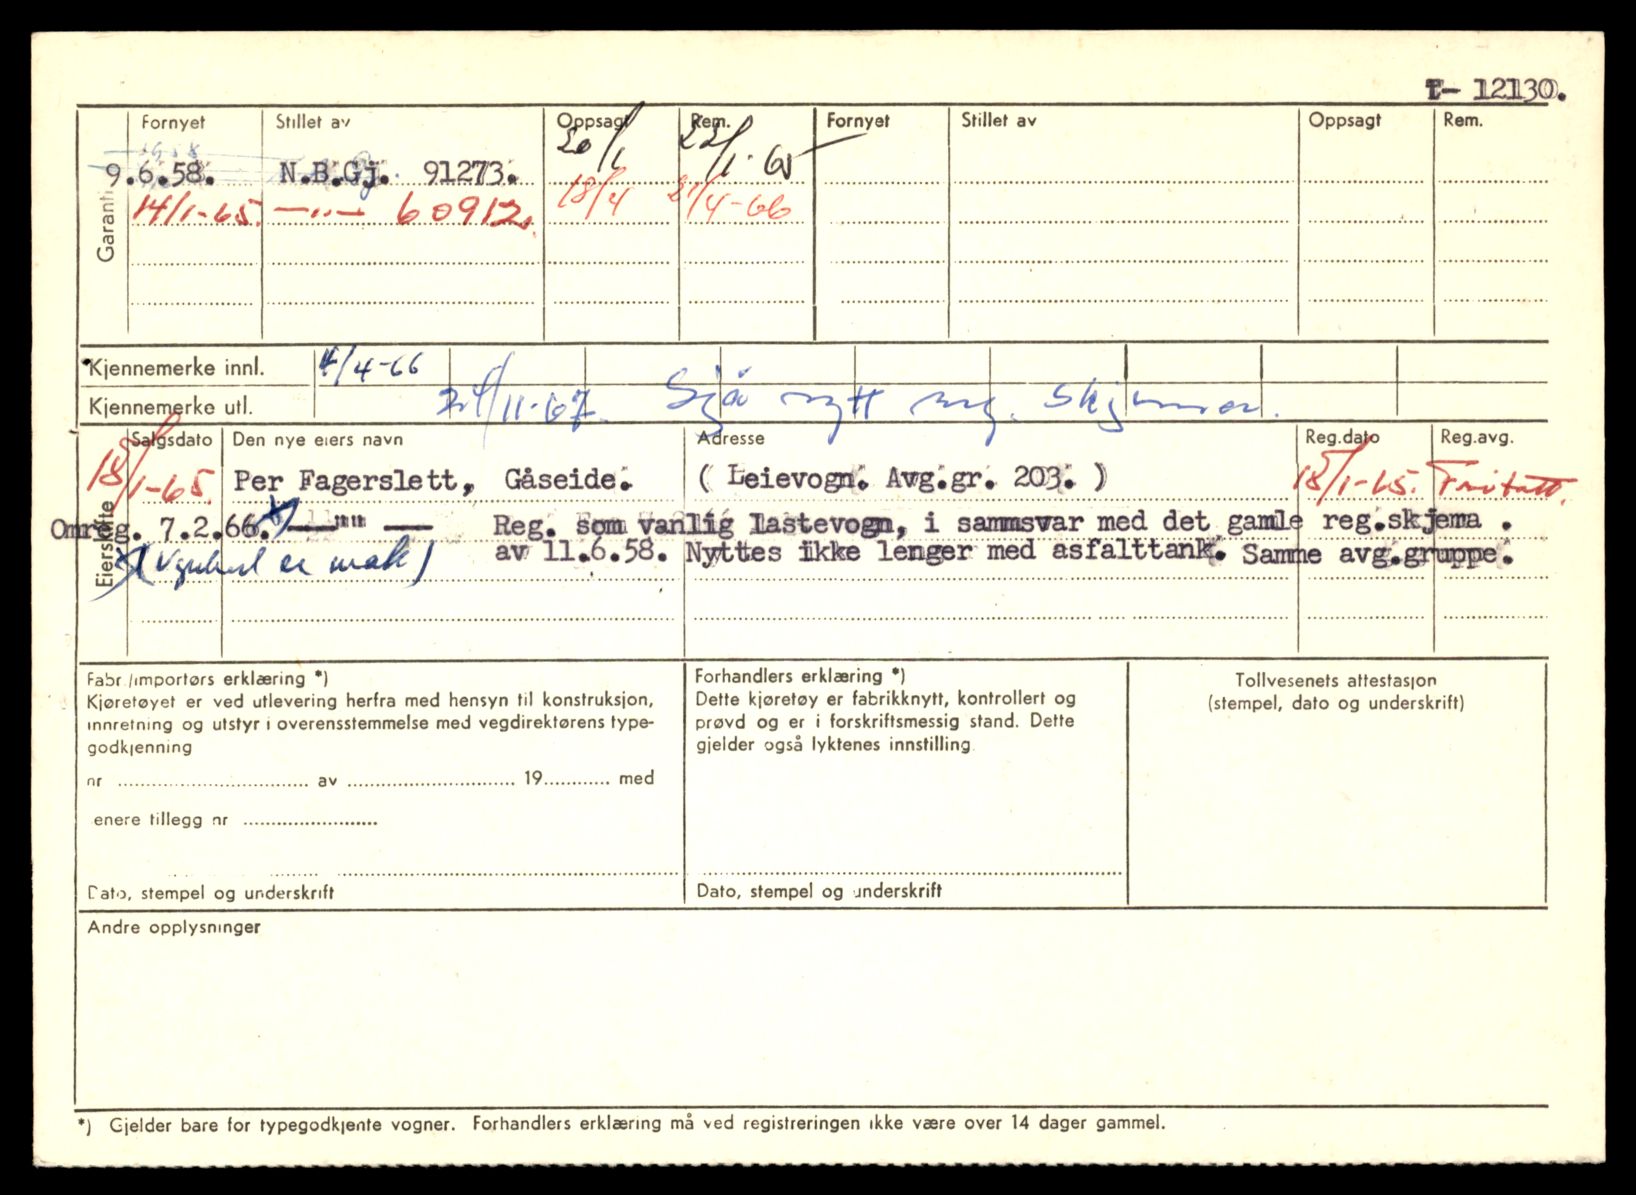 T- 12130.
Fornyet Stillet av Oppsagt Rem. Fornyet Stillet av Oppsagt Rem.
Garanti
9.6.58. N.B.Gj. 91273. 20/1 22/1-65
14/1-65. —„— 60912. 18/4 21/4-66
Kjennemerke innl. 4/4-66
Kjennemerke utl. 24/11-67. Sjå nytt reg. skjema.
Eierskifte
Salgsdato Den nye eiers navn Adresse Reg.dato Reg.avg.
18/1-65. Per Fagerslett, Gåseide. ( Leievogn. Avg.gr. 203. ) 18/1-65. Fritatt.
Omreg. 7.2.66. —"— Reg. som vanlig lastevogn, i sammsvar med det gamle reg.skjema .
av 11.6.58. Nyttes ikke lenger med asfalttank. Samme avg.gruppe.
er
Fabr./importørs erklæring *)
Kjøretøyet er ved utlevering herfra med hensyn til konstruksjon,
innretning og utstyr i overensstemmelse med vegdirektørens type-
godkjenning
nr ........ av ........ 19........ med
enere tillegg nr ........
Dato, stempel og underskrift
Forhandlers erklæring *)
Dette kjøretøy er fabrikknytt, kontrollert og
prøvd og er i forskriftsmessig stand. Dette
gjelder også lyktenes innstilling
Dato, stempel og underskrift
Tollvesenets attestasjon
(stempel, dato og underskrift)
Andre opplysninger
*) Gjelder bare for typegodkjente vogner. Forhandlers erklæring må ved registreringen ikke være over 14 dager gammel.